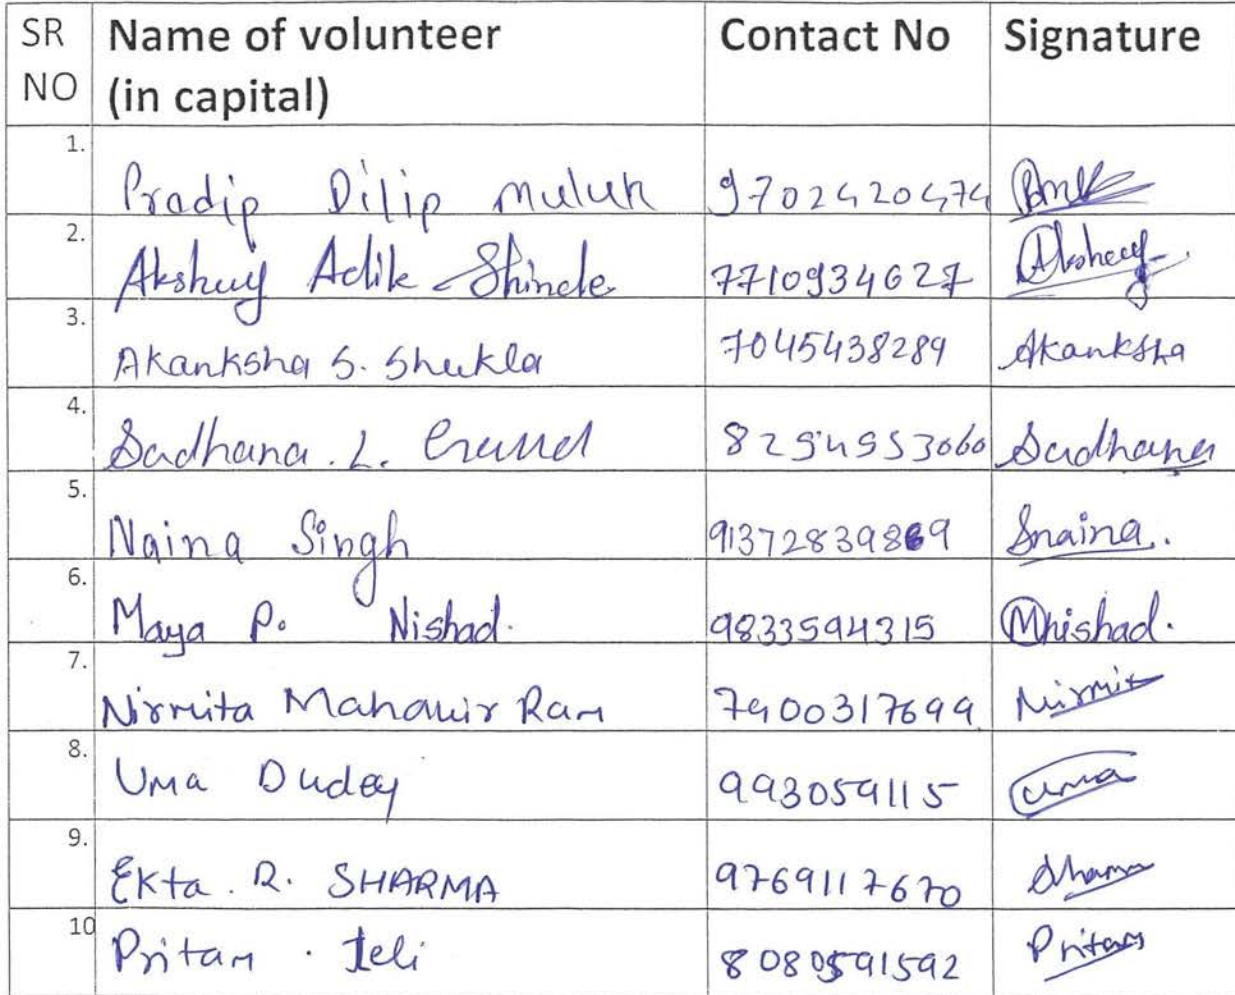 SR NO Name of volunteer (in capital) Contact No Signature
1. Pradip Dilip Muluk 9702420474
2. Akshuy Adik Shinde 7710934627 Akshay
3. Akanksha S. Shukla 7045438289 Akanksha
4. Sadhana . L. 8294953060 Sadhana
5. Naina Singh 9137283989 Snaina.
6. Maya P. Nishad. 9833594315 Mnishad.
7. Nirmita Mahavir Ram 7900317699 Nirmita
8. Uma Dudey 993059115 uma
9. Ekta . R. SHARMA 9769117670
10 Pritam . Teli 8080591592 Pritam